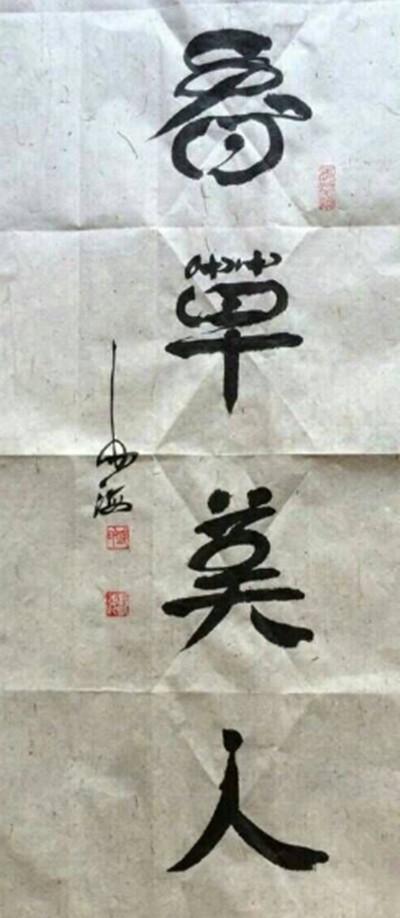 香草美人
海